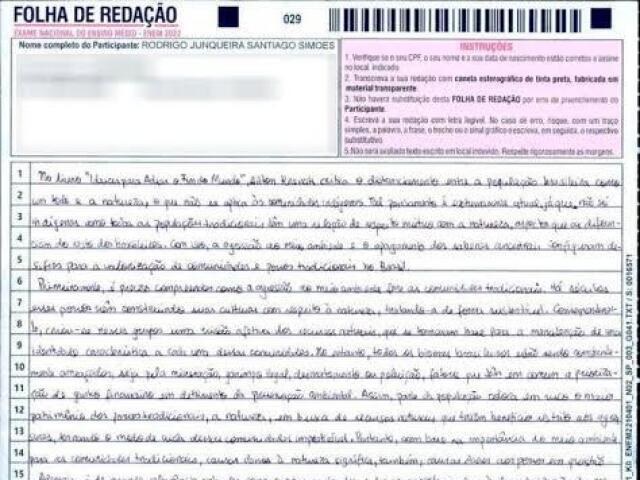 FOLHA DE REDAÇÃO
029
EXAME NACIONAL DO ENSINO MÉDIO - ENEM 2022
Nome completo do Participante: RODRIGO JUNQUEIRA SANTIAGO SIMOES
INSTRUÇÕES
1. Verifique se o seu CPF, o seu nome e a sua data de nascimento estão corretos e assine
no local indicado.
2. Transcreva a sua redação com caneta esferográfica de tinta preta, fabricada em
material transparente.
3. Não haverá substituição desta FOLHA DE REDAÇÃO por erro de preenchimento do
Participante.
4. Escreva a sua redação com letra legível. No caso de erro, risque, com um traço
simples, a palavra, a frase, o trecho ou o sinal gráfico e escreva, em seguida, o respectivo
substitutivo.
5. Não será avaliado texto escrito em local indevido. Respeite rigorosamente as margens.
1 No livro "Ideias para Adiar o Fim do Mundo", Ailton Krenak critica o distanciamento entre a população brasileira como
2 um todo e a natureza, o que não se aplica às comunidades indígenas. Tal pensamento é extremamente atual, já que, não só
3 indígenas como todas as populações tradicionais têm uma relação de respeito mútuo com a natureza, aspecto que as diferen-
4 ciam do resto dos brasileiros. Com isso, a agressão ao meio ambiente e o apagamento dos saberes ancestrais configuram de-
5 safios para a valorização de comunidades e povos tradicionais no Brasil.
6 Primeiramente, é preciso compreender como a agressão ao meio ambiente fere as comunidades tradicionais. Há séculos
7 esses povos vêm construindo suas culturas com respeito à natureza, tratando-a de forma sustentável. Consequentemen-
8 te, criou-se nesses grupos uma visão afetiva dos recursos naturais, que se tornaram base para a manutenção de uma
9 identidade característica a cada uma dessas comunidades. No entanto, todos os biomas brasileiros estão sendo constante-
10 mente ameaçados, seja pela mineração, garimpo ilegal, desmatamento ou poluição, fatos que têm em comum a prioriza-
11 ção de ganhos financeiros em detrimento da preservação ambiental. Assim, parte da população coloca em risco o maior
12 patrimônio dos povos tradicionais, a natureza, em busca de recursos naturais que trazem benefício restrito aos agres-
13 sores, tornando o modo de vida dessas comunidades impossível. Portanto, com base na importância do meio ambiente
14 para as comunidades tradicionais, causar danos à natureza significa, também, causar danos aos povos em questão.
15
1_K6 ENEM2210401_N02_SP_003_G041.TXT / S: 0016571